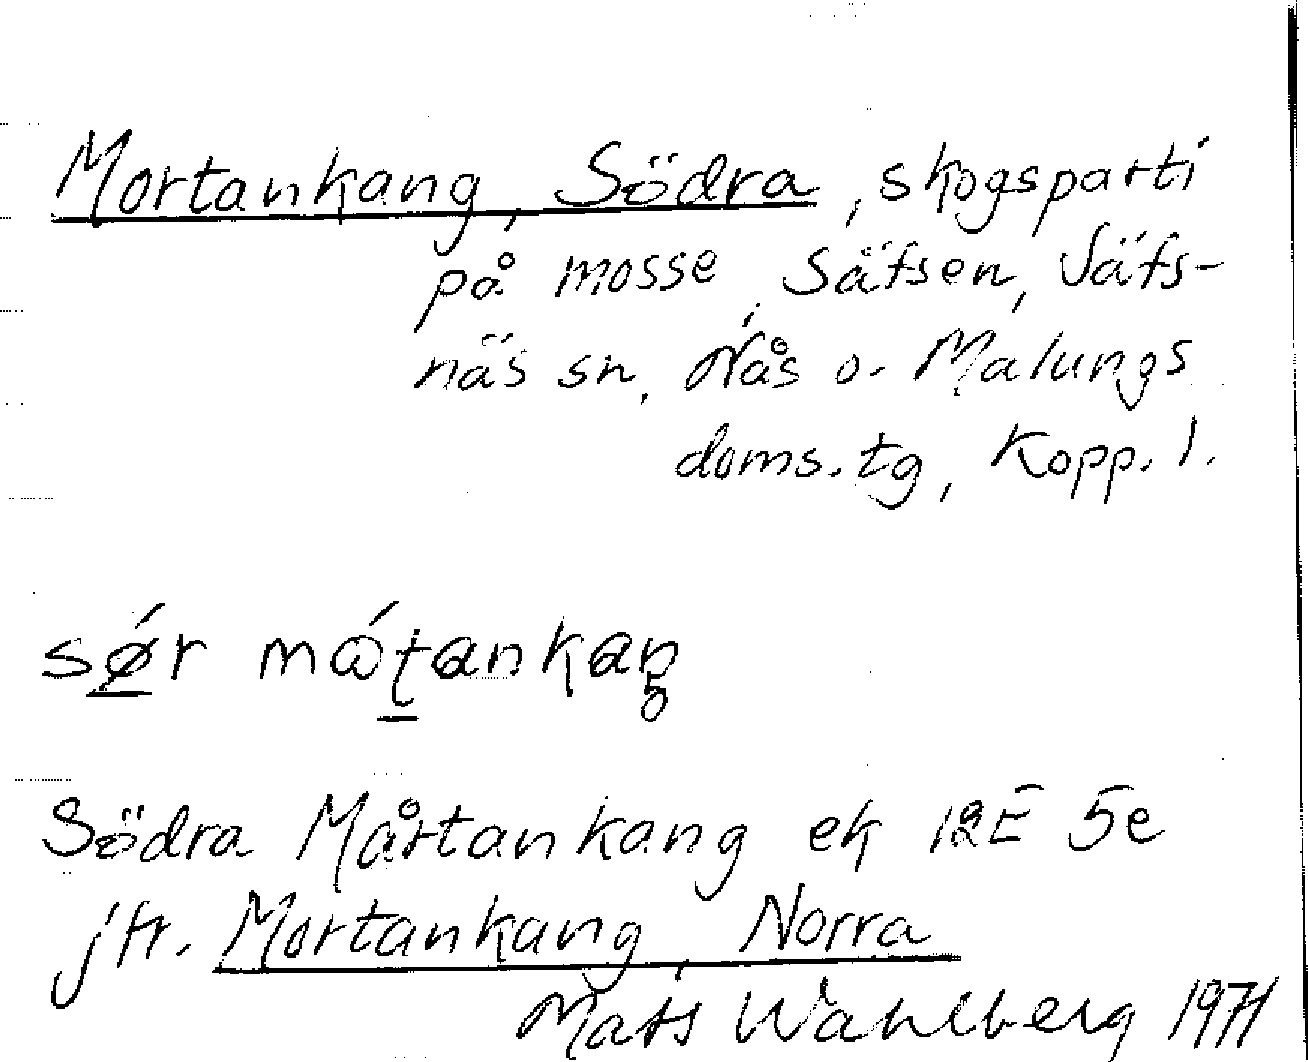 Mortankang, Södra, skogsparti
på mosse, Säfsen, Säfs-
näs sn, Nås o. Malungs
doms. tg, Kopp. l.
sǿr mɷ́ʈankaŋ̥
Södra Mårtankang ek 12E 5e
jfr. Mortankang, Norra
Mats Wahlberg 1971